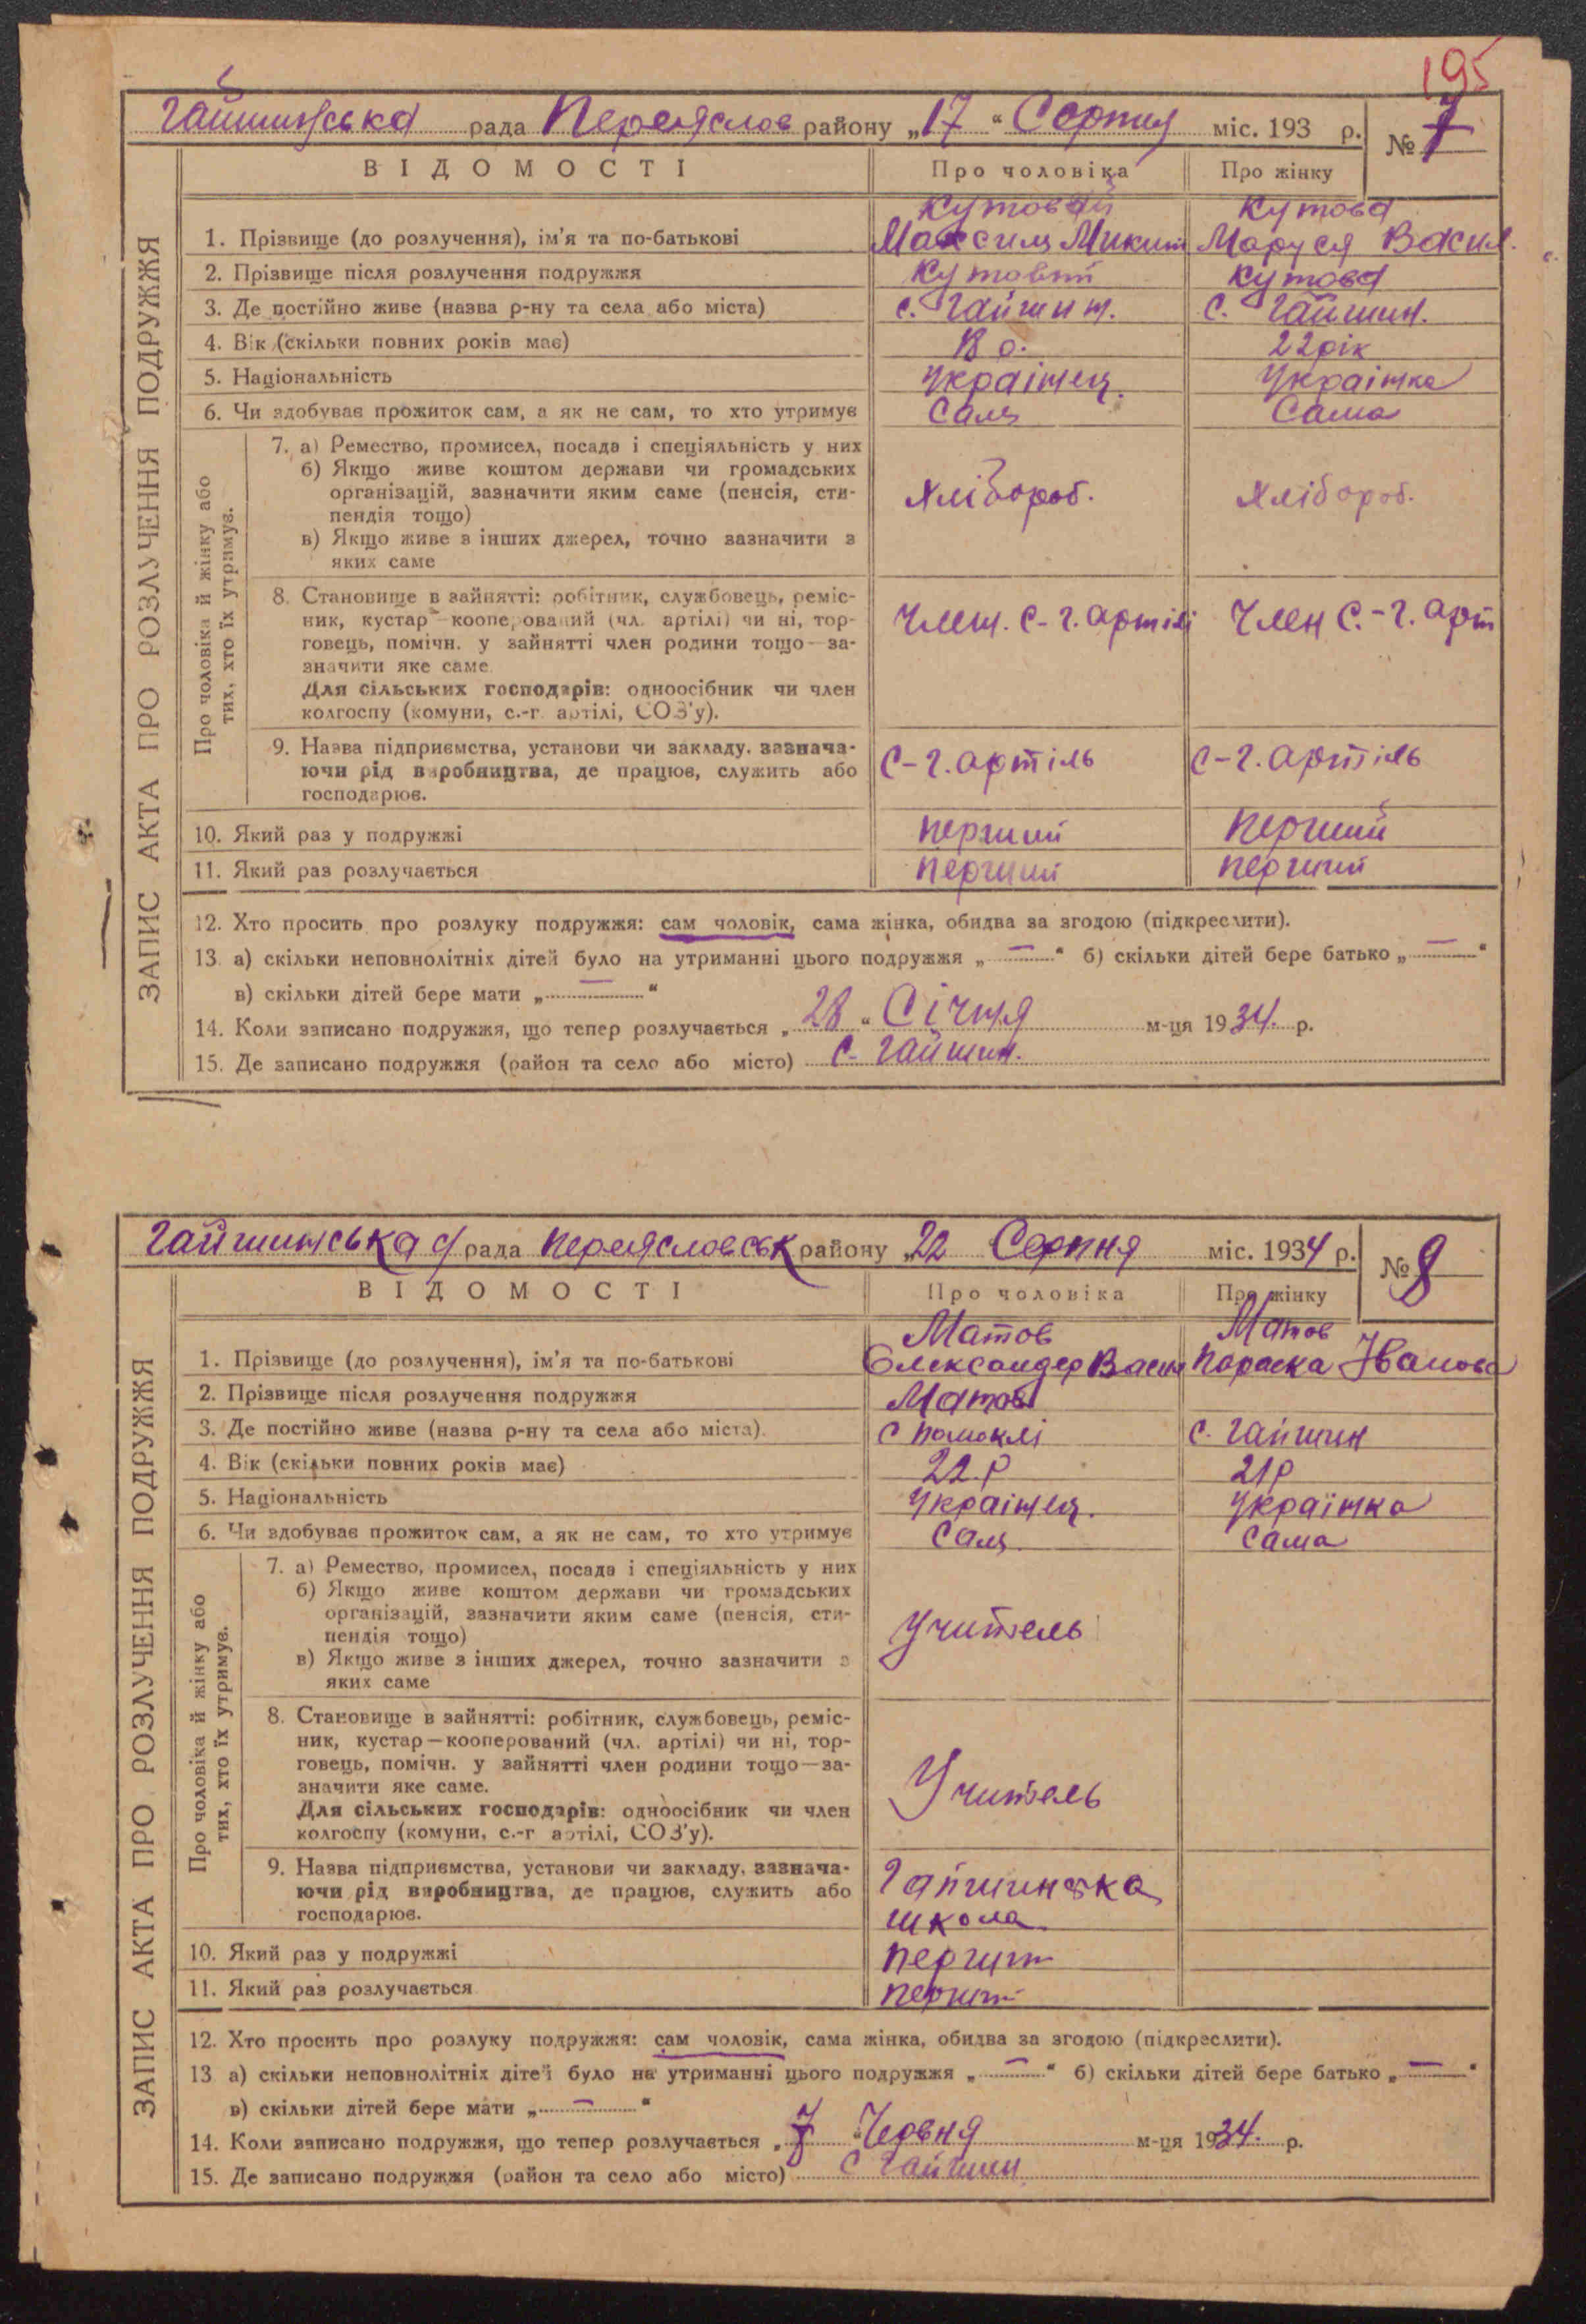 195
Гайшинська рада Переяслов району „17“ Серпня міс. 193 р. № 7
ВІДОМОСТІ Про чоловіка Про жінку
Кутовай Кутова
1. Прізвище (до розлучення), ім'я та по-батькові Максим Микит Маруся Васил.
2. Прізвище після розлучення подружжя Кутовий Кутова
3. Де постійно живе (назва р-ну та села або міста) с. Гайшин. с. Гайшин.
4. Вік (скільки повних років має) 18 р. 22 рік
5. Національність Українец. Українка
6. Чи здобуває прожиток сам, а як не сам, то хто утримує Сам Сама
Про чоловіка й жінку або
тих, хто їх утримує.
7. а) Ремество, промисел, посада і спеціяльність у них
б) Якщо живе коштом держави чи громадських
організацій, зазначити яким саме (пенсія, сти-
пендія тощо) Хлібороб. Хлібороб.
в) Якщо живе з інших джерел, точно зазначити з
яких саме
8. Становище в зайнятті: робітник, службовець, реміс-
ник, кустар—кооперований (чл. артілі) чи ні, тор- Член. С-г. артілі Член С.-г. арт
говець, помічн. у зайнятті член родини тощо—за-
значити яке саме.
Для сільських господарів: одноосібник чи член
колгоспу (комуни, с.-г. артілі, СОЗ'у).
9. Назва підприємства, установи чи закладу, зазнача-
ючи рід виробництва, де працює, служить або С-г. артіль С-г. артіль
господарює.
10. Який раз у подружжі перший перший
11. Який раз розлучається перший перший
12. Хто просить про розлуку подружжя: сам чоловік, сама жінка, обидва за згодою (підкреслити).
13. а) скільки неповнолітніх дітей було на утриманні цього подружжя „—“ б) скільки дітей бере батько „—“
в) скільки дітей бере мати „—“
14. Коли записано подружжя, що тепер розлучається „28“ Січня м-ця 1934. р.
15. Де записано подружжя (район та село або місто) с. Гайшин.
ЗАПИС АКТА ПРО РОЗЛУЧЕННЯ ПОДРУЖЖЯ
Гайшинська рада Переясловськ району „22 Серпня міс. 1934 р. № 8
ВІДОМОСТІ Про чоловіка Про жінку
Матов Матов
1. Прізвище (до розлучення), ім'я та по-батькові Олександер Васил Параска Іванова
2. Прізвище після розлучення подружжя Матов
3. Де постійно живе (назва р-ну та села або міста). с Помоклі с. Гайшин
4. Вік (скільки повних років має) 22.р 21р
5. Національність Українец. Українка
6. Чи здобуває прожиток сам, а як не сам, то хто утримує Сам Сама
Про чоловіка й жінку або
тих, хто їх утримує.
7. а) Ремество, промисел, посада і спеціяльність у них
б) Якщо живе коштом держави чи громадських
організацій, зазначити яким саме (пенсія, сти-
пендія тощо) Учитель
в) Якщо живе з інших джерел, точно зазначити з
яких саме
8. Становище в зайнятті: робітник, службовець, реміс-
ник, кустар—кооперований (чл. артілі) чи ні, тор-
говець, помічн. у зайнятті член родини тощо—за-
значити яке саме. Учитель
Для сільських господарів: одноосібник чи член
колгоспу (комуни, с.-г артілі, СОЗ'у).
9. Назва підприємства, установи чи закладу, зазнача- Гайшинська
ючи рід виробництва, де працює, служить або
господарює. школа
10. Який раз у подружжі перший
11. Який раз розлучається перший
12. Хто просить про розлуку подружжя: сам чоловік, сама жінка, обидва за згодою (підкреслити).
13 а) скільки неповнолітніх дітей було на утриманні цього подружжя „—“ б) скільки дітей бере батько „—“
в) скільки дітей бере мати „—“
14. Коли записано подружжя, що тепер розлучається „7“ Червня м-ця 1934. р.
15. Де записано подружжя (район та село або місто) с Гайшин
ЗАПИС АКТА ПРО РОЗЛУЧЕННЯ ПОДРУЖЖЯ